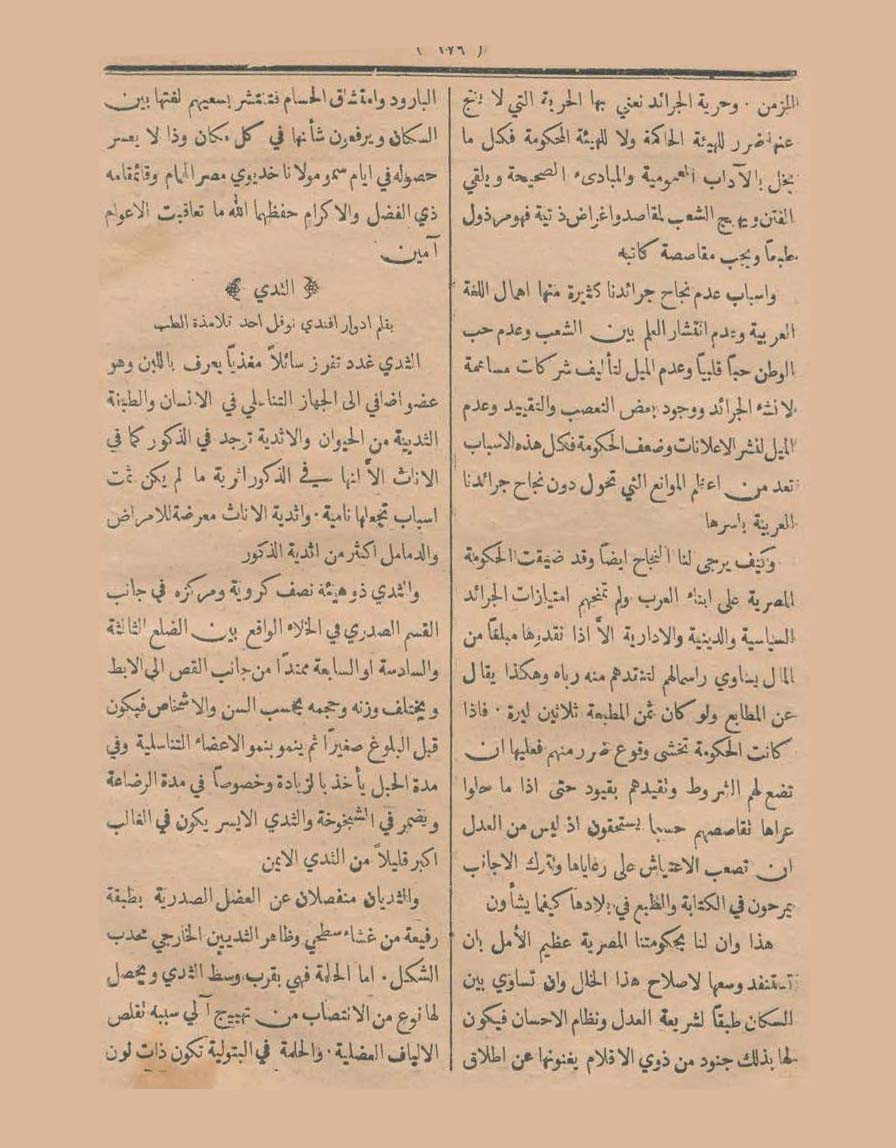 ( ١٧٦ )
المزمن . وحرية الجرائد نعني بها الحرية التي لا ينتج
عنها ضرر للهيئة الحاكمة ولا للهيئة المحكومة فكل ما
يخل بالآداب العمومية والمبادىء الصحيحة ويلقي
الفتن ويهيج الشعب لمقاصد واغراض ذتية فهو مرذول
طبعاً ويجب مقاصصة كاتبه
واسباب عدم نجاح جرائدنا كثيرة منها اهمال اللغة
العربية وعدم انتشار العلم بين الشعب وعدم حب
الوطن حباً قلبياً وعدم الميل لتأليف شركات مساهمة
لانشاء الجرائد ووجود بعض التعصب والتقييد وعدم
الميل لنشر الاعلانات وضعف الحكومة فكل هذه الاسباب
تعد من اعظم الموانع التي تحول دون نجاح جرائدنا
العربية باسرها
وكيف يرجى لنا النجاح ايضاً وقد ضيقت الحكومة
المصرية على ابناء العرب ولم تمنحهم امتيازات الجرائد
السياسية والدينية والادارية الاَّ اذا نقدرها مبلغاً من
المال يساوي راسمالهم لتنقدهم منه رباه وهكذا يقال
عن المطابع ولو كان ثمن المطبعة ثلاثين ليرة . فاذا
كانت الحكومة تخشى وقوع ضرر منهم فعليها ان
تضع لهم الشروط وتقيدهم بقيود حتى اذا ما حلوا
عراها تقاصصهم حسبما يستحقون اذ ليس من العدل
ان تصعب الاعتياش على رعاياها وتترك الاجانب
يمرحون في الكتابة والطبع في بلادها كيفما يشأون
هذا وان لنا بحكومتنا المصرية عظيم الأمل بان
تستنفد وسعها لاصلاح هذا الخلل وان تساوي بين
السكان طبقاً لشريعة العدل ونظام الاحسان فيكون
لها بذلك جنود من ذوي الاقلام يغنونها عن اطلاق
البارود وامتشاق الحسام فتنتشر بسعيهم لغتها بين
السكان ويرفعون شأنها في كل مكان وذا لا يعسر
حصوله في ايام سمو مولانا خديوي مصر الهمام وقائمقامه
ذي الفضل والاكرام حفظهما الله ما تعاقبت الاعوام
آمين
﴿ الثدي ﴾
بقلم ادوار افندي نوفل احد تلامذة الطب
الثدي غدد تفرز سائلاً مغذياً يعرف باللبن وهو
عضو اضافي الى الجهاز التناسلي في الانسان والطبقة
الثديية من الحيوان والاثدية توجد في الذكور كما في
الاناث الاَّ انها في الذكور اثرية ما لم يكن ثمت
اسباب تجعلها نامية . واثدية الاناث معرضة للامراض
والدمامل اكثر من اثدية الذكور
والثدي ذو هيئة نصف كروية ومركزه في جانب
القسم الصدري في الخلاء الواقع بين الضلع الثالثة
والسادسة او السابعة ممتداً من جانب القص الى الابط
ويختلف وزنه وحجمه بحسب السن والاشخاص فيكون
قبل البلوغ صغيراً ثم ينمو بنمو الاعضاء التناسلية وفي
مدة الحبل يأخذ بالزيادة وخصوصاً في مدة الرضاعة
ويضمر في الشيخوخة والثدي الايسر يكون في الغالب
اكبر قليلاً من الثدي الايمن
والثديان منفصلان عن العضل الصدرية بطبقة
رفيعة من غشاء سطحي وظاهر الثديين الخارجي محدب
الشكل . اما الحلمة فهي بقرب وسط الثدي ويحصل
لها نوع من الانتصاب من تهييج آلي سببه تقلص
الالياف العضلية . والحلمة في البتولية تكون ذات لون